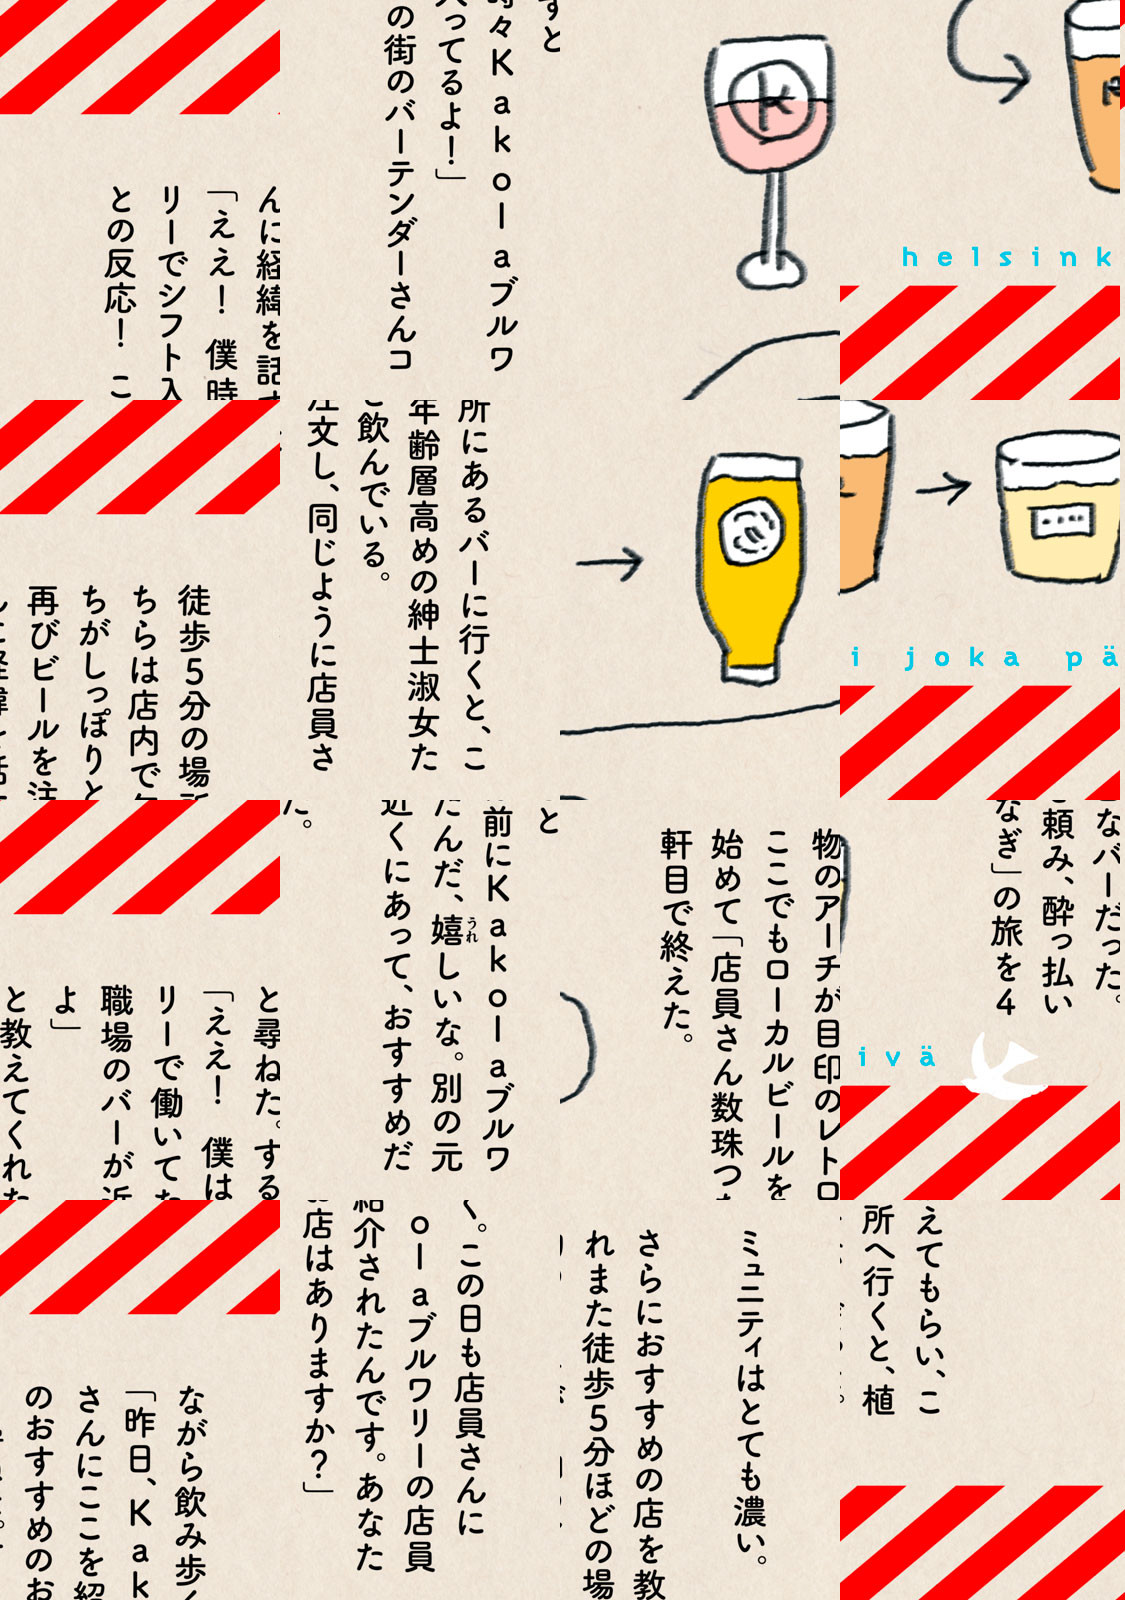 んに経緯を話す
「ええ！ 僕時
リーでシフト入
との反応！ こ
すと
時々Kakolaブルワ
入ってるよ！」
の街のバーテンダーさんコ
helsink
徒歩5分の場所
ちらは店内で
ちがしっぽりと
再びビールを注
んに経緯を話
所にあるバーに行くと、こ
年齢層高めの紳士淑女た
と飲んでいる。
注文し、同じように店員さ
i joka pä
と尋ねた。する
「ええ！ 僕は
リーで働いてた
職場のバーが近
よ」
と教えてくれた
と
前にKakolaブルワ
たんだ、嬉しいな。別の元
うれ
近くにあって、おすすめだ
た。
物のアーチが目印のレトロ
ここでもローカルビールを
始めて「店員さん数珠つな
軒目で終えた。
なバーだった。
頼み、酔っ払い
なぎ」の旅を4
ivä
ながら飲み歩く
「昨日、Kak
さんにここを紹
のおすすめのお
く。この日も店員さんに
olaブルワリーの店員
紹介されたんです。あなた
お店はありますか？」
ミュニティはとても濃い。
さらにおすすめの店を教
れまた徒歩5分ほどの場
えてもらい、こ
所へ行くと、植